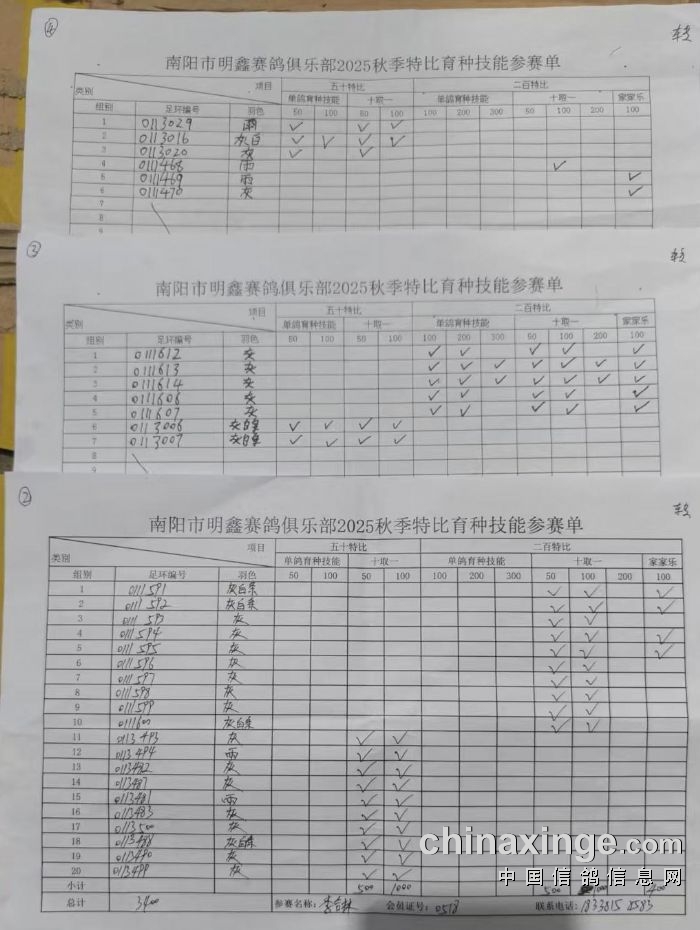 ④
南阳市明鑫赛鸽俱乐部2025秋季特比育种技能参赛单
项目 五十特比 二百特比
类别 单鸽育种技能 十取一 单鸽育种技能 十取一 家家乐
组别 足环编号 羽色 50 100 50 100 100 200 300 50 100 200 100
1 0113029 雨 ✓ ✓ ✓
2 0113016 灰白 ✓ ✓ ✓ ✓
3 0113020 灰 ✓ ✓
4 0111468 雨 ✓
5 0111469 雨 ✓
6 0111470 灰 ✓
7
8
9
③
南阳市明鑫赛鸽俱乐部2025秋季特比育种技能参赛单
项目 五十特比 二百特比
类别 单鸽育种技能 十取一 单鸽育种技能 十取一 家家乐
组别 足环编号 羽色 50 100 50 100 100 200 300 50 100 200 100
1 0111612 灰 ✓ ✓ ✓ ✓ ✓
2 0111613 灰 ✓ ✓ ✓ ✓ ✓ ✓ ✓
3 0111614 灰 ✓ ✓ ✓ ✓ ✓ ✓ ✓
4 0111606 灰 ✓ ✓ ✓ ✓ ✓
5 0111607 灰 ✓ ✓ ✓ ✓ ✓
6 0113006 灰白条 ✓ ✓ ✓ ✓
7 0113007 灰白条 ✓ ✓ ✓ ✓
8
9
②
南阳市明鑫赛鸽俱乐部2025秋季特比育种技能参赛单
项目 五十特比 二百特比
类别 单鸽育种技能 十取一 单鸽育种技能 十取一 家家乐
组别 足环编号 羽色 50 100 50 100 100 200 300 50 100 200 100
1 0111591 灰白条 ✓ ✓ ✓
2 0111592 灰白条 ✓ ✓ ✓
3 0111593 灰 ✓ ✓
4 0111594 灰 ✓ ✓ ✓
5 0111595 灰 ✓ ✓ ✓
6 0111596 灰 ✓ ✓
7 0111597 灰 ✓ ✓
8 0111598 灰 ✓ ✓
9 0111599 灰 ✓ ✓
10 0111600 灰白条 ✓ ✓
11 0113493 灰 ✓ ✓
12 0113494 雨 ✓ ✓
13 0113482 灰 ✓ ✓
14 0113487 灰 ✓ ✓
15 0113481 雨 ✓ ✓
16 0113483 灰 ✓ ✓
17 0113500 灰 ✓ ✓
18 灰白条 ✓ ✓
19 0113490 灰 ✓ ✓
20 0113499 灰 ✓ ✓
小计 500 1000 500 1000 400
总计 3400 参赛名称： 会员证号：0518 联系电话：
chinaxinge.com
中国信鸽信息网